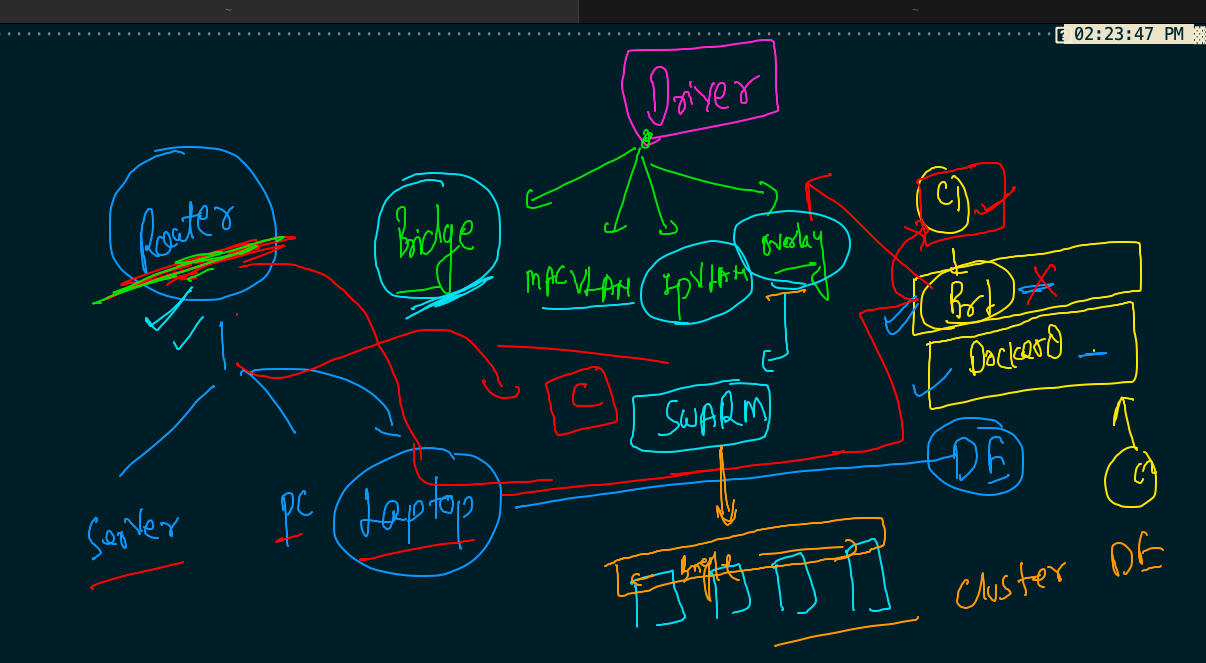 ~
~
02:23:47 PM
Driver
Router
Bridge
MACVLAN
IPVLAN
overlay
C1
Br1
DockerD
C
SWARM
DE
Server
PC
Laptop
Cluster
DE